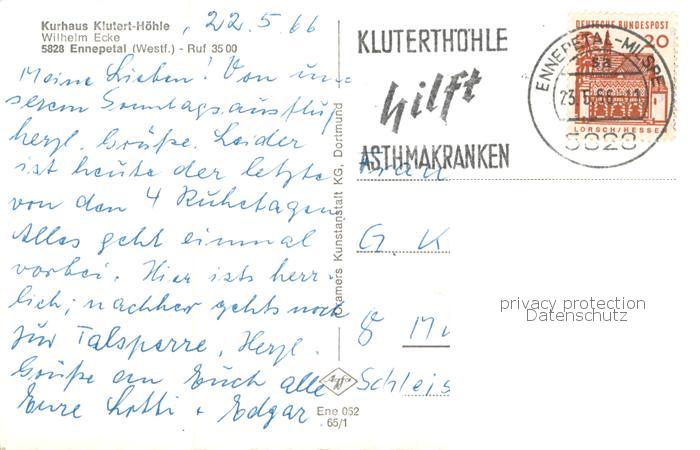 Kurhaus Klutert-Höhle
Wilhelm Ecke
5828 Ennepetal (Westf.) - Ruf 35 00
, 22.5.66
Meine Lieben! Von un-
serem Sonntagsausflug
herzl. Grüße. Leider
ist heute der letzte
von den 4 Ruhetagen.
Alles geht einmal
vorbei. Hier ists herr-
lich; nachher gehts noch
zur Talsperre, Herzl.
Grüße an Euch alle
Eure Lotti + Edgar
Cramers Kunstanstalt KG, Dortmund
Agfa
Ene 052
65/1
KLUTERTHÖHLE
hilft
ASTHMAKRANKEN
DEUTSCHE BUNDESPOST
20
LORSCH/HESSEN
ENNEPETAL-MILSPE
sa
23.5.66
5828
G. K
8 Mü
Schleis
privacy protection
Datenschutz